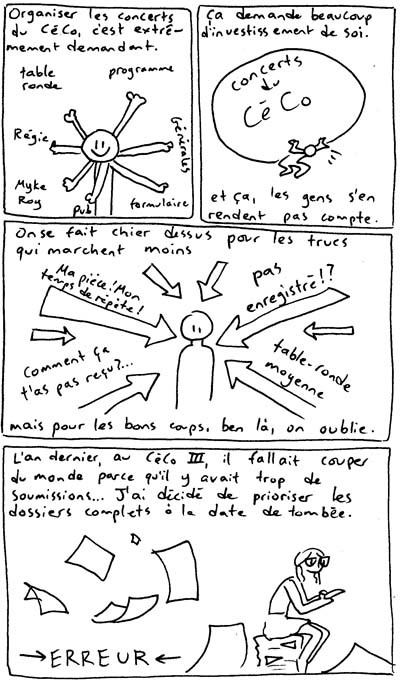 Organiser les concerts
du CéCo, c'est extrê-
mement demandant.
table
ronde
programme
Régie
Générales
Myke
Roy
pub
formulaire
Ça demande beaucoup
d'investissement de soi.
concerts
du
CéCo
et ça, les gens s'en
rendent pas compte.
On se fait chier dessus pour les trucs
qui marchent moins
Ma pièce! Mon
temps de répète!
pas
enregistré!?
Comment ça
t'as pas reçu?...
table-ronde
moyenne
mais pour les bons coups, ben là, on oublie.
L'an dernier, au CéCo III, il fallait couper
du monde parce qu'il y avait trop de
soumissions... J'ai décidé de prioriser les
dossiers complets à la date de tombée.
→ERREUR←